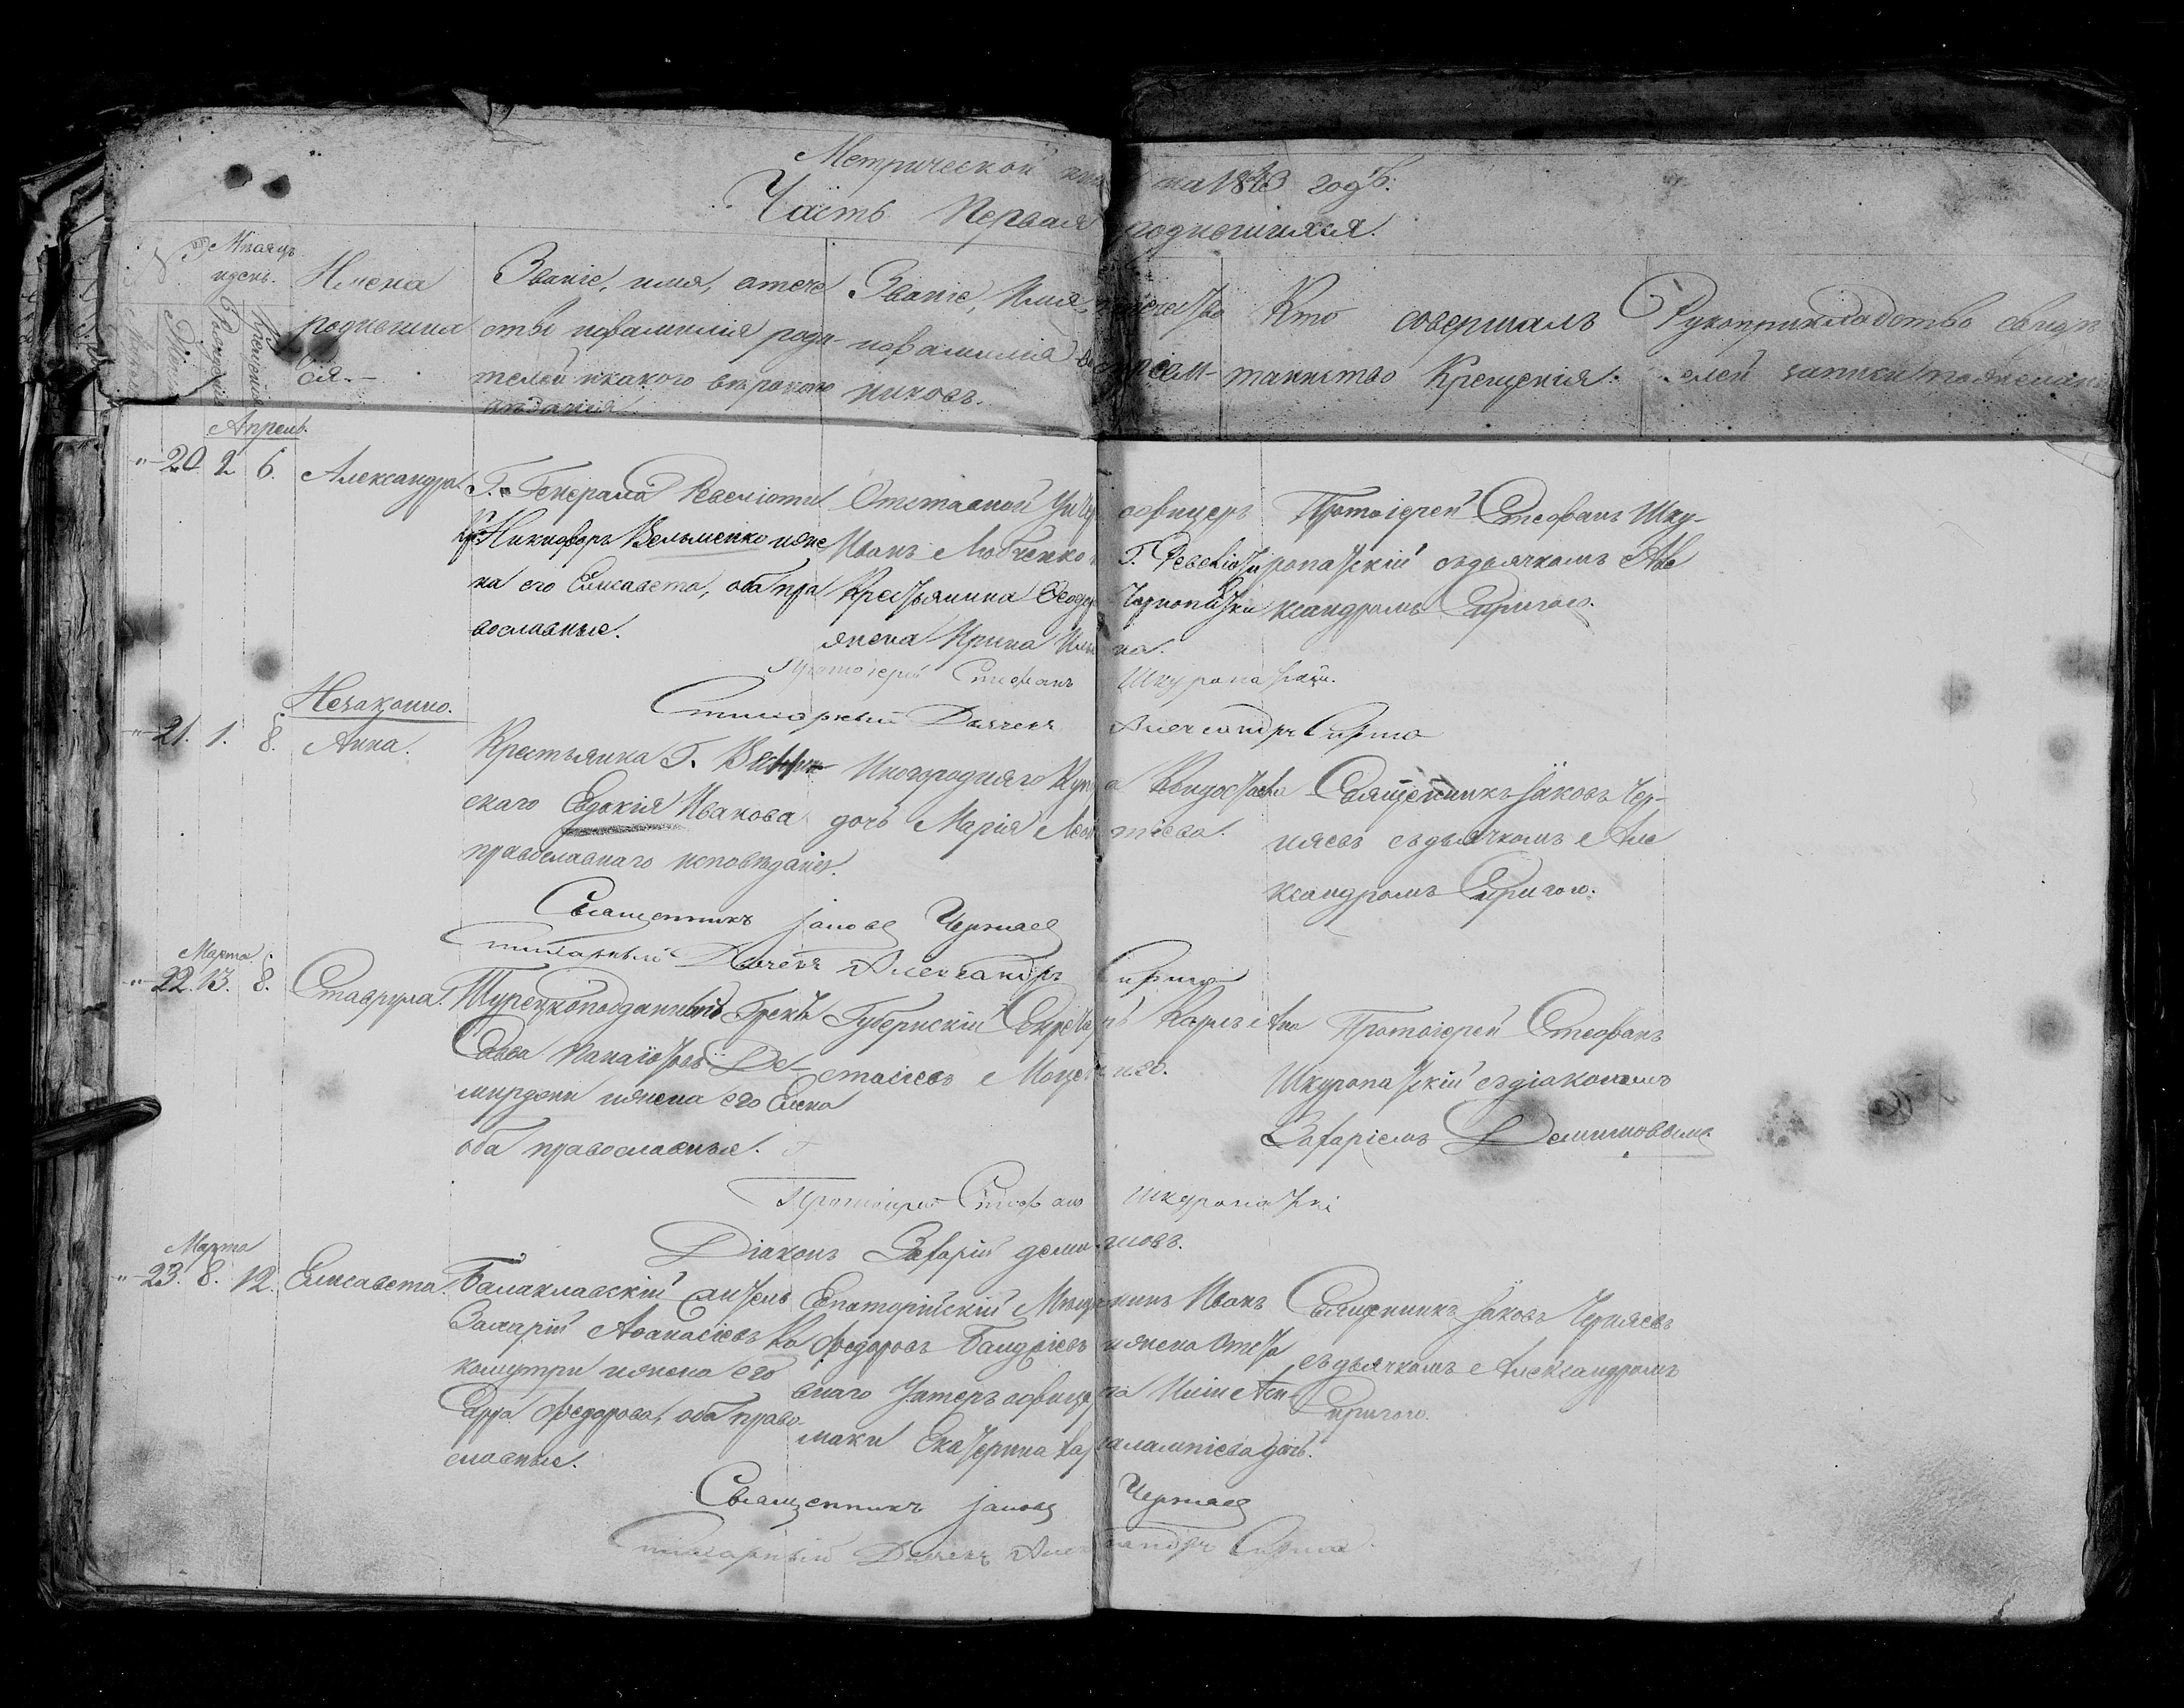 Метрической на 1843 годъ.
Часть Первая родившихся.
Мѣсяцъ и день.
Рожденія
Крещенія
Имена родившихся.
Званіе, имя, отечество и фамилія родителей и какого вѣроисповѣданія.
Званіе, Имя, отечество и фамилія воспріемниковъ.
Кто совершалъ таинство Крещенія.
Рукоприкладство свидѣтелей записи по желанію
Апрель.
20 2 6. Александра.
Г. Генерала Ревеліоти
Кр. Никифоръ Вельменко и жена
его Елисавета, оба православные.
Отставной Унтеръ офицеръ
Иванъ Любченко и Г. Ревеліоти
Крестьянина
жена Ирина
Протоіерей Стефанъ Шкуропатскій съ дьячкомъ Александромъ Сиригою.
Протоіерей Стефанъ Шкуропатскій.
Дьячекъ Александръ Сирига
Незаконно.
21. 1. 8. Анна.
Крестьянка Г.
Евдокія Иванова
православнаго исповѣданія.
Иногородняго Купца
дочь Марія Леонтіева.
Священникъ Іаковъ Черняевъ съ дьячкомъ Александромъ Сиригою.
Священникъ Іаковъ Черняев
Дьячекъ Александръ Сирига
Марта
22. 13. 8. Ставрула.
Турецкоподданный Грекъ
Савва Панаіотовъ Де-
мирджи и жена его Елена
оба православные.
Губернскій Секретарь Карпъ Ана-
стасіевъ
Протоіерей Стефанъ
Шкуропатскій съ діакономъ
Захаріемъ Деминовымъ
Протоіерей Стефанъ Шкуропатскі
Діаконъ Захарій Деминовъ.
Марта
23. 8. 12. Елисавета.
Балаклавскій житель
Захарій Афанасіевъ Ка
и жена его
Федорова, оба право-
славные.
Евпаторійскій Мѣщанинъ Иванъ
Федоровъ и жена Отста
внаго Унтеръ офицера
Екатерина Харалампіева дочь.
Священникъ Іаковъ Черняевъ
съ дьячкомъ Александромъ
Сиригою.
Священникъ Іаковъ Черняев
Дьячекъ Александръ Сирига.